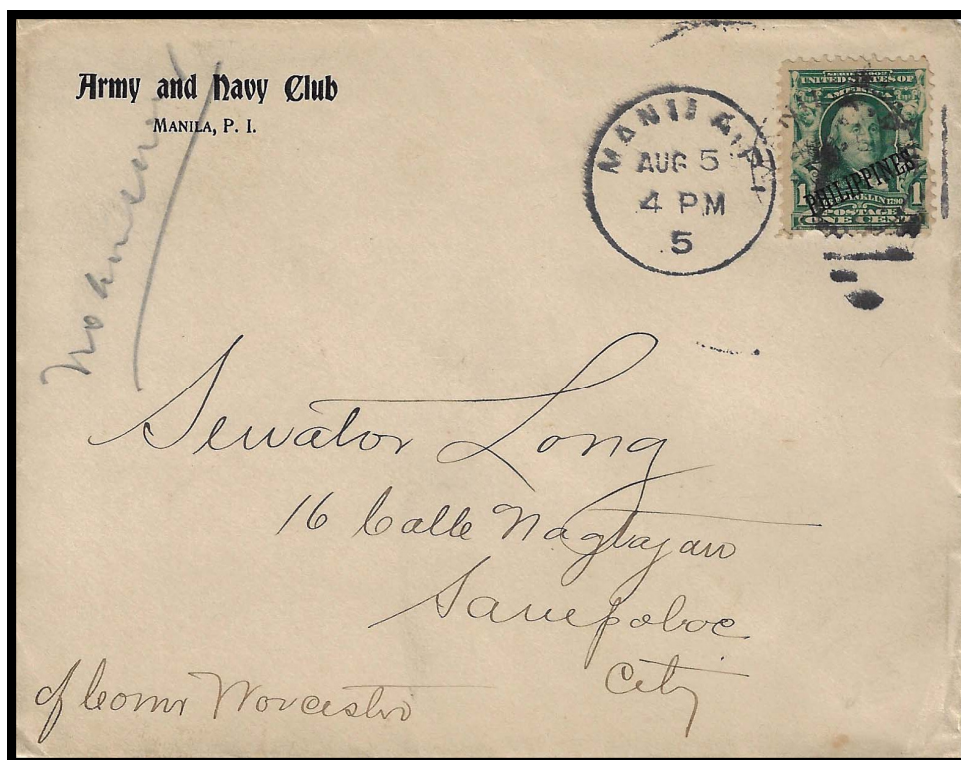 Army and Navy Club
MANILA, P. I.
No answer
MANILA, P.I.
AUG 5
4 PM
5
SERIES 1902
UNITED STATES OF
AMERICA
PHILIPPINES
1 FRANKLIN 1790 1
POSTAGE
ONE CENT
Senator Long
16 Calle Nagtajan
Sampaloc
City
c/o Comr Worcester